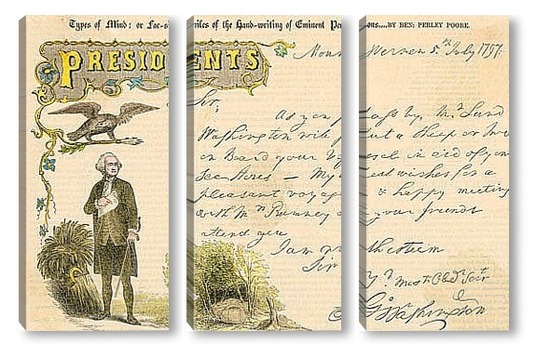 Types of Mind: or Fac-similes of the Hand-writing of Eminent Persons....BY BEN: PERLEY POORE.
PRESIDENTS
Mount Vernon 5th July 1797.
Sir,
As you pass by, Mr Lund
Washington will put a Sheep or two
on Board your Vessel in aid of your
Sea Stores — My best wishes for a
pleasant voyage & happy meeting
with Mrs your friends
attend you
I am
Sir
Yr Most Obedt Servt
Go Washington